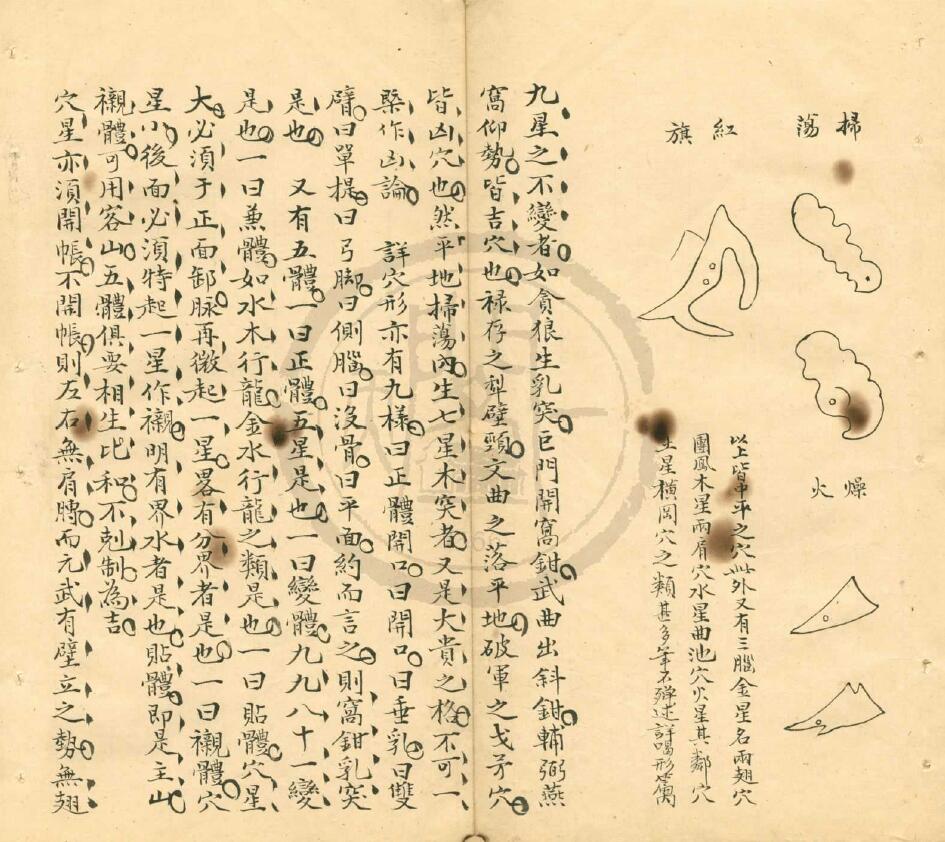 掃蕩
燥火
紅旗
以上皆中平之穴此外又有三腦金星名兩翅穴
團鳳木星兩肩穴水星曲池穴火星其鄰穴
土星橫岡穴之類甚多筆不殫述詳喝形篇
九星之不變者如貪狼生乳突巨門開窩鉗武曲出斜鉗輔弼燕
窩仰勢皆吉穴也祿存之犁壁頸文曲之落平地破軍之戈矛穴
皆凶穴也然平地掃蕩內生七星木突者又是大貴之格不可一
槩作凶論 詳穴形亦有九樣曰正體開口曰開口曰垂乳曰雙
臂曰單提曰弓脚曰側腦曰沒骨曰平面約而言之則窩鉗乳突
是也 又有五體一曰正體五星是也一曰變體九九八十一變
是也一曰兼體如水木行龍金水行龍之類是也一曰貼體穴星
大必須于正面卸脉再微起一星畧有分界者是也一曰襯體穴
星小後面必須特起一星作襯明有界水者是也貼體即是主山
襯體可用客山五體俱要相生比和不剋制為吉
穴星亦須開帳不開帳則左右無肩膊而元武有壁立之勢無翅